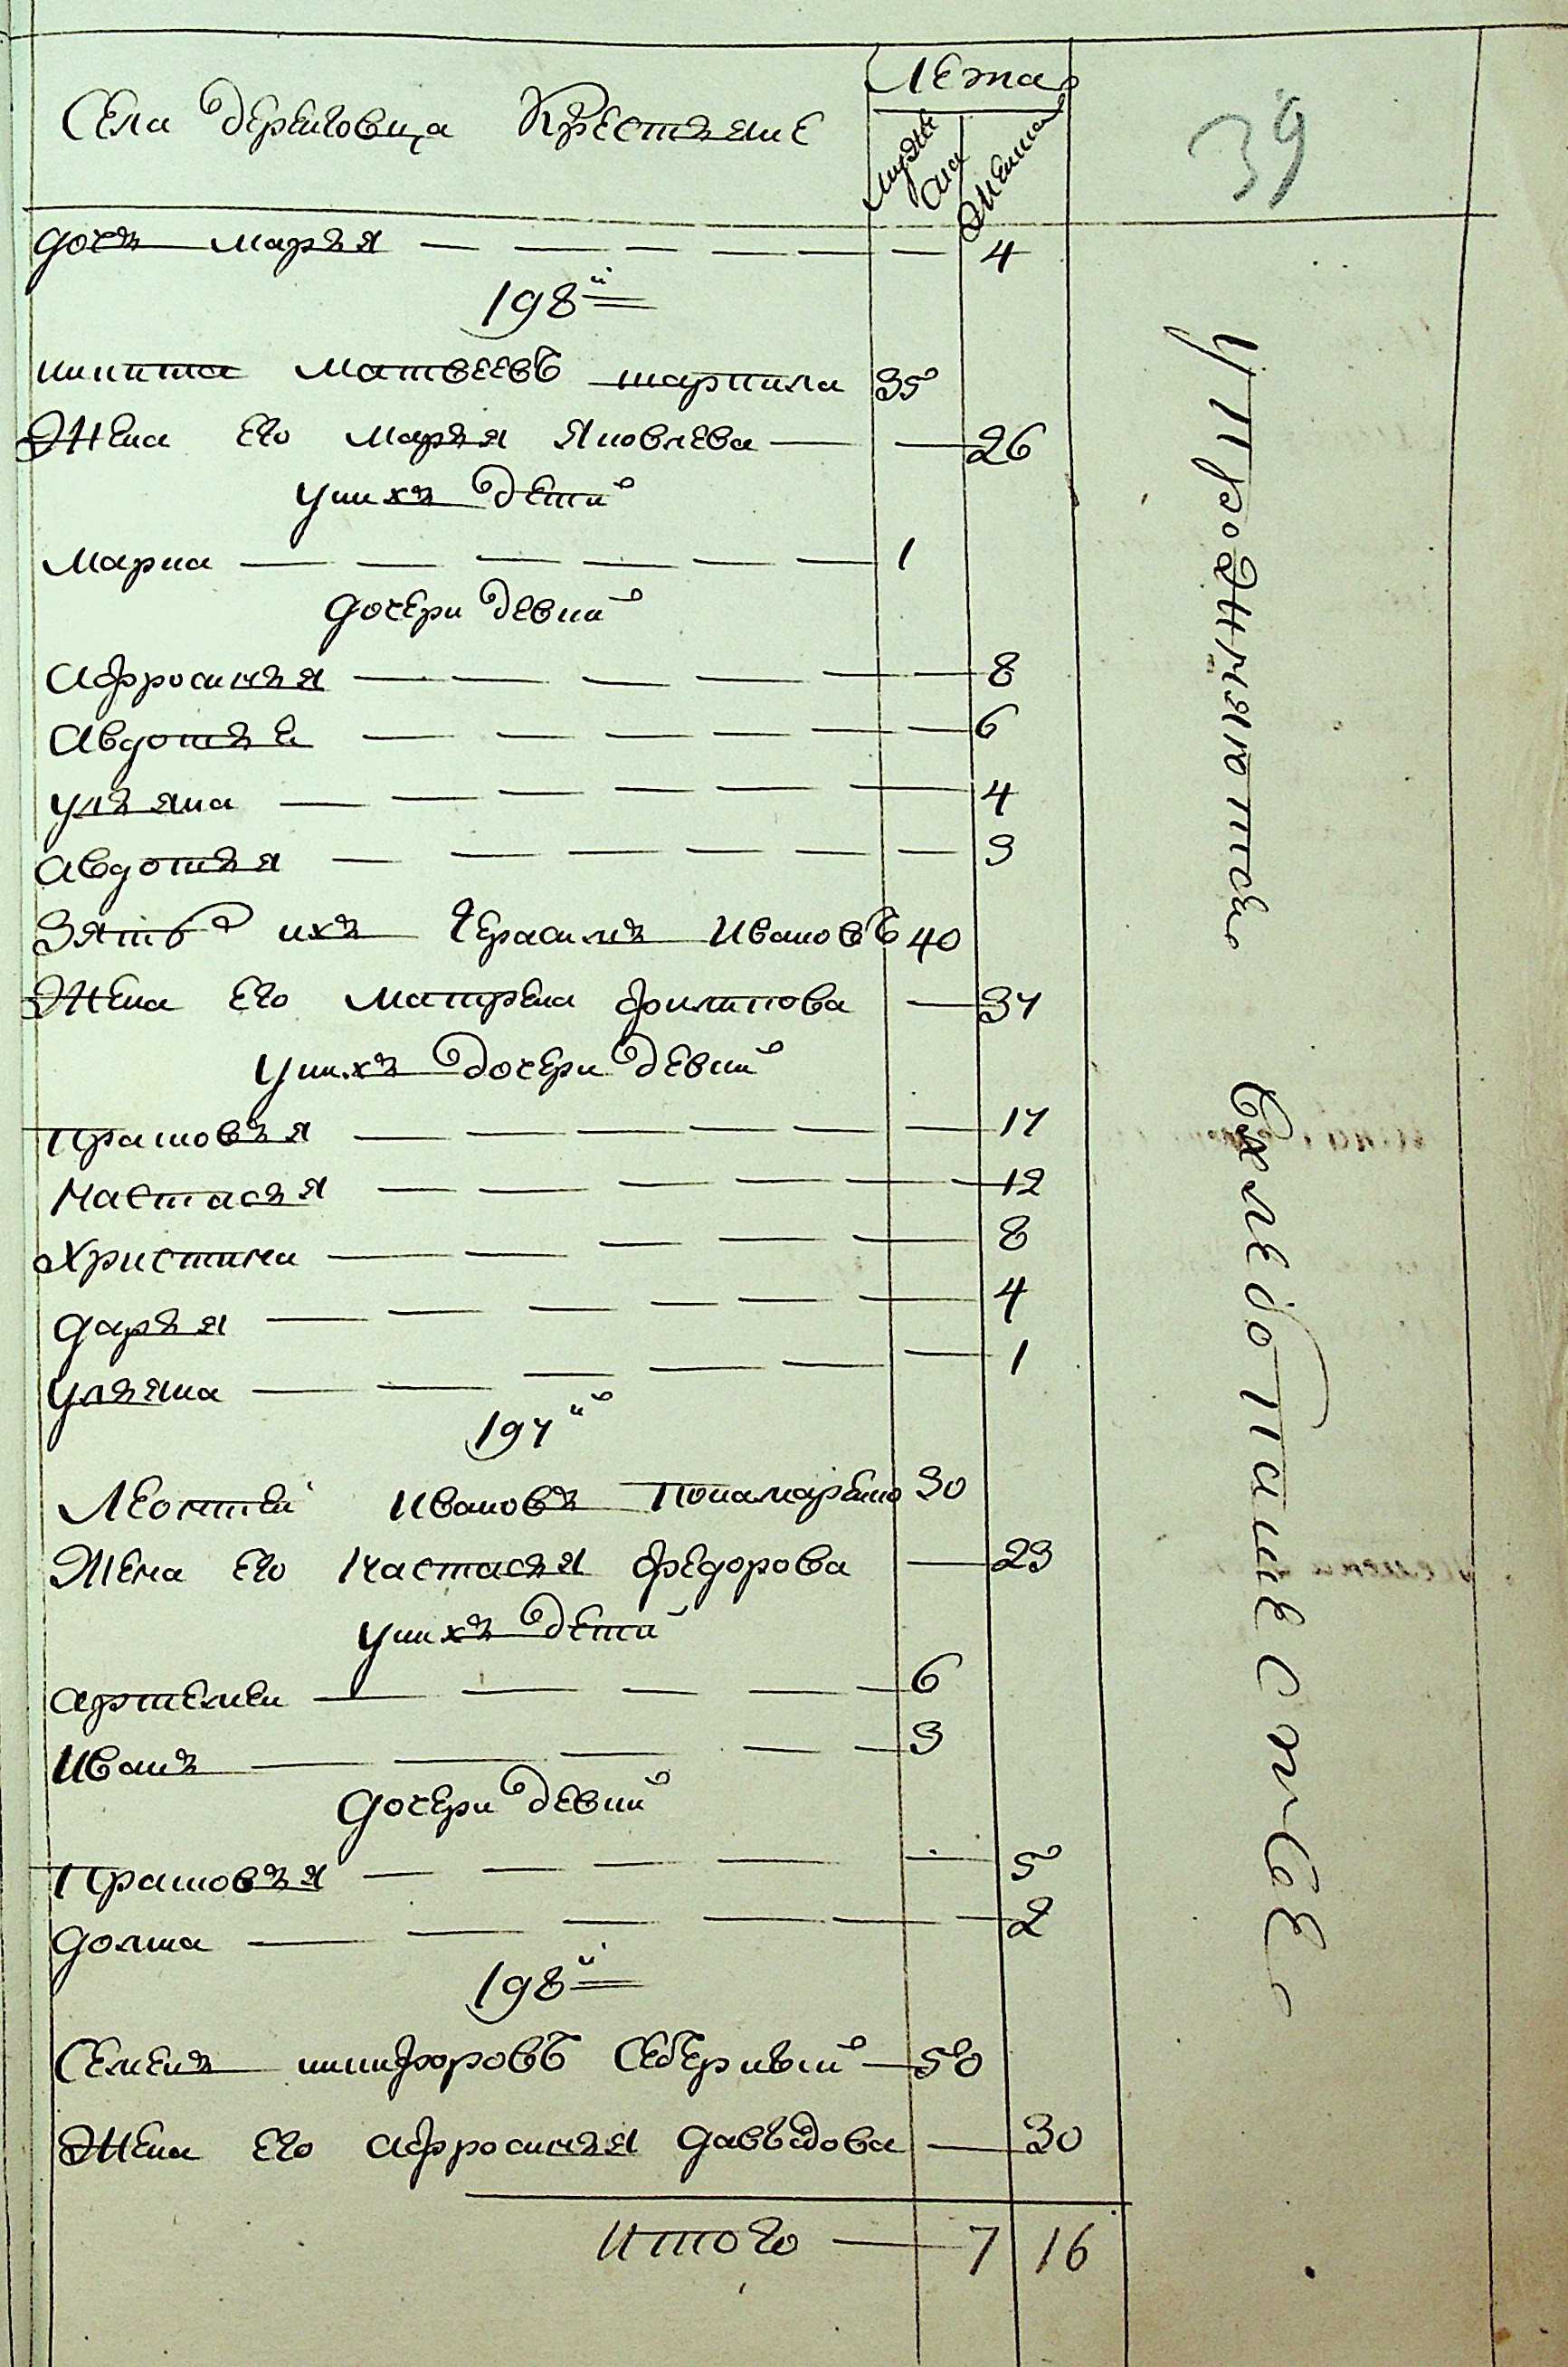 Села Дереиговца Крестьяне
Лета
мужеска
женска
39
дочь марья 4
198й
никита матвеевъ шарпила 35
Жена его марья яковлева 26
унихъ дети
марка 1
дочери девки
афросинья 8
авдотья 6
ульяна 4
авдотья 3
Зять ихъ герасимъ ивановъ 40
Жена его матрена филипова 37
унихъ дочери девки
прасковья 17
настасья 12
христина 8
дарья 4
ульяна 1
197й
Леонтей ивановъ понамаренко 30
Жена его настасья федорова 23
унихъ дети
артемей 6
иванъ 3
дочери девки
прасковья 5
домна 2
198й
Семенъ никифоровъ 50
Жена его афросинья давыдова 30
итого 7 16
упрожняютсь
вхлебопашестве